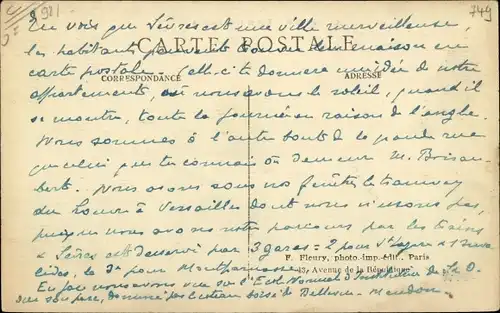 1921
749
CARTE POSTALE
CORRESPONDANCE
ADRESSE
Tu vois que Sèvres est une ville merveilleuse,
les habitants peuvent de leur maison en
carte postale. Celle-ci te donnera une idée de notre
appartement, où nous avons le soleil, quand il
se montre, toute la journée en raison de l'angle.
Nous sommes à l'autre bout de la grande rue
que celui que tu connais où demeure M.
Nous avons sous nos fenêtres le tramway
du Louvre à Versailles dont nous n'usons pas,
puisque nous avons notre parcours par les trains
Sèvres est desservi par 3 gares = 2 pour St Lazare
le 3e pour Montparnasse
En face nous avons vue sur l'Ecole Normale d'Institutrices de S. O.
dans son parc, dominé par le coteau boisé de Bellevue-Meudon.
F. Fleury, photo-imp.-édit., Paris
43, Avenue de la République